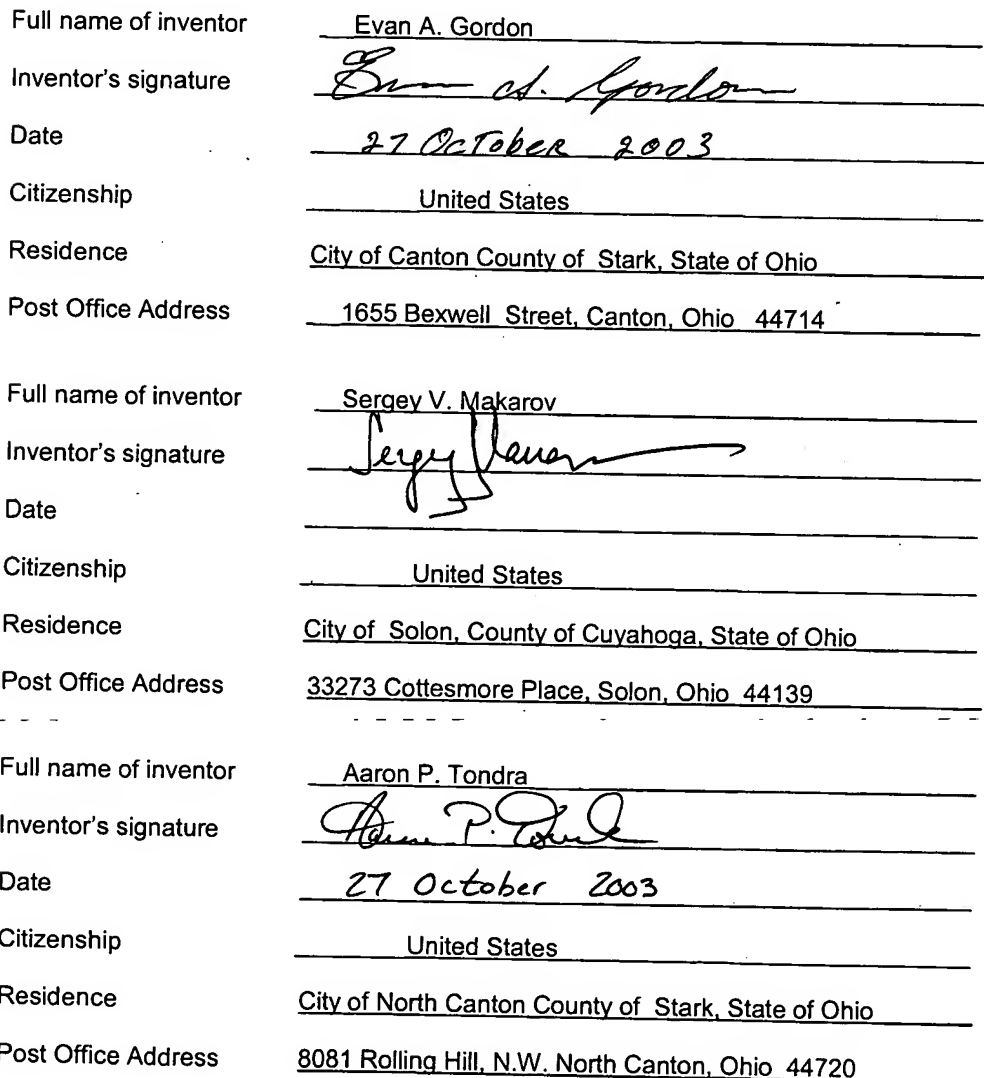 Full name of inventor Evan A. Gordon
Inventor's signature Evan A. Gordon
Date 27 October 2003
Citizenship United States
Residence City of Canton County of Stark, State of Ohio
Post Office Address 1655 Bexwell Street, Canton, Ohio 44714
Full name of inventor Sergey V. Makarov
Inventor's signature Sergey Makarov
Date
Citizenship United States
Residence City of Solon, County of Cuyahoga, State of Ohio
Post Office Address 33273 Cottesmore Place, Solon, Ohio 44139
Full name of inventor Aaron P. Tondra
Inventor's signature Aaron P. Tondra
Date 27 October 2003
Citizenship United States
Residence City of North Canton County of Stark, State of Ohio
Post Office Address 8081 Rolling Hill, N.W. North Canton, Ohio 44720